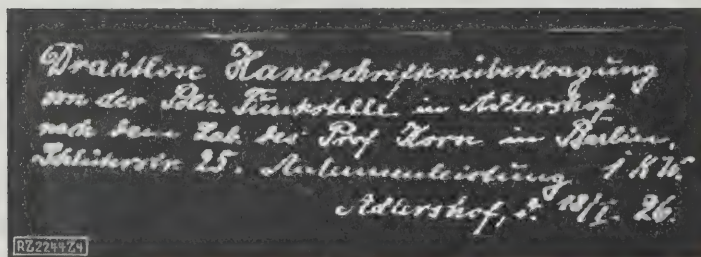 Drahtlose Handschriftenübertragung
von der Poliz. Funkstelle in Adlershof
nach dem Lab. des Prof. Korn in Berlin,
Schlüterstr. 25. Antennenleistung 1 KW.
Adlershof, d. 18/I. 26.
RZ2244Z4